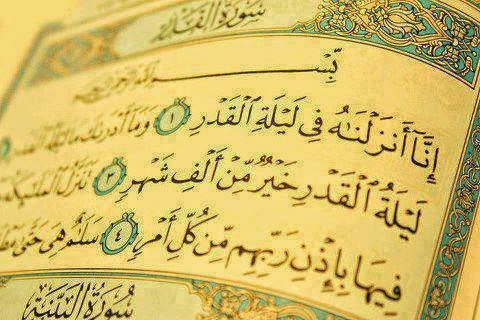 سُورَةُ الْقَدْرِ
بِسْمِ اللَّهِ الرَّحْمَٰنِ الرَّحِيمِ
إِنَّا أَنزَلْنَاهُ فِي لَيْلَةِ الْقَدْرِ ١ وَمَا أَدْرَاكَ مَا لَيْلَةُ الْقَدْرِ
لَيْلَةُ الْقَدْرِ خَيْرٌ مِّنْ أَلْفِ شَهْرٍ ٣ تَنَزَّلُ الْمَلَائِكَةُ
فِيهَا بِإِذْنِ رَبِّهِم مِّن كُلِّ أَمْرٍ ٤ سَلَامٌ هِيَ حَتَّىٰ
سُورَةُ الْبَيِّنَةِ